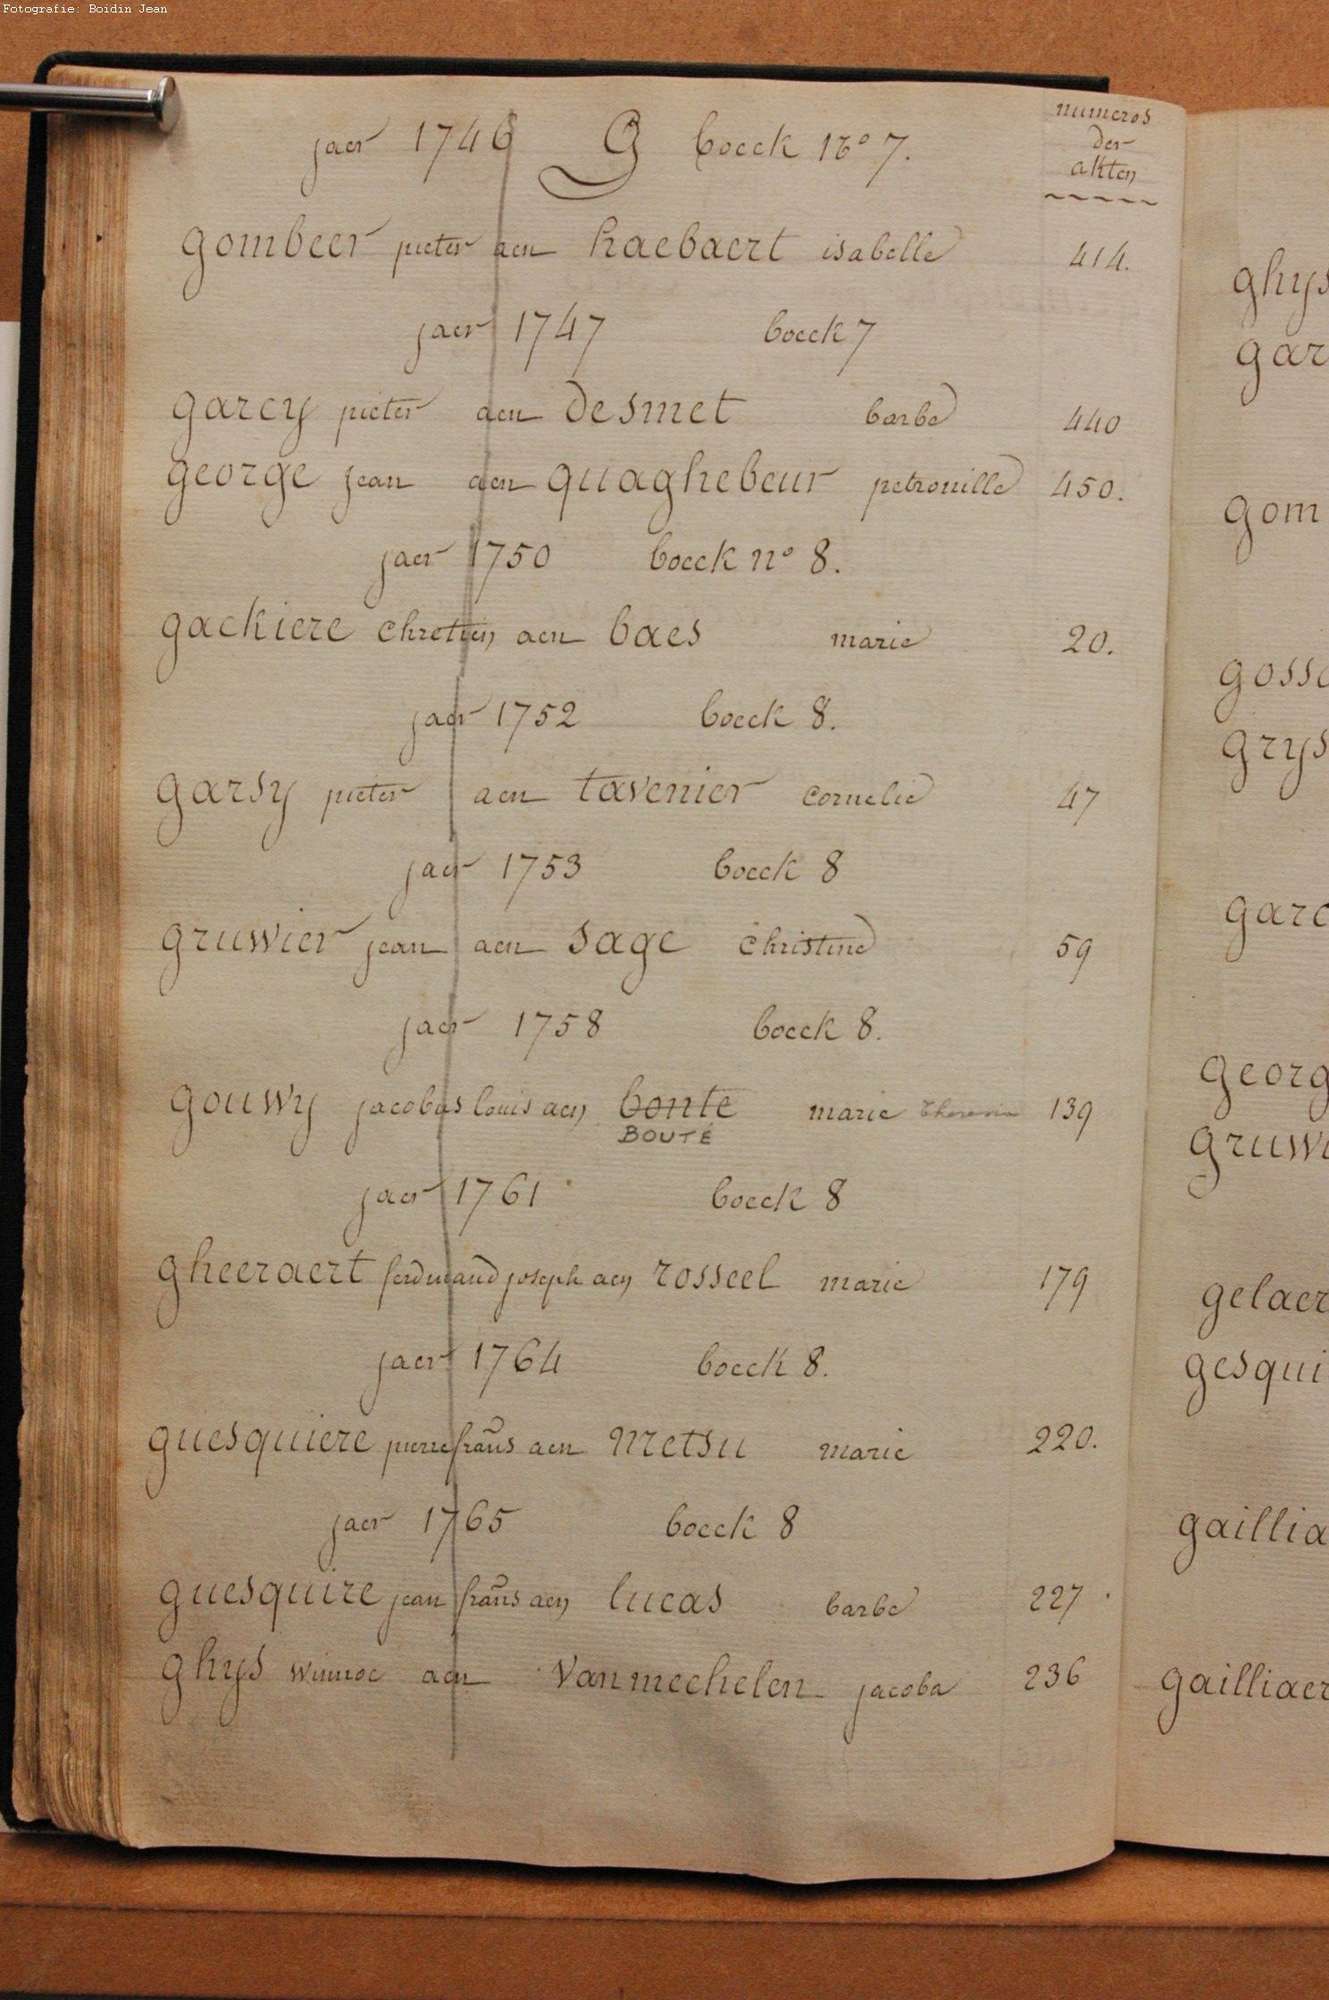 Fotografie: Boidin Jean
numeros
der
akten
jaer 1746 G boeck no 7.
gombeer pieter aen haebaert isabelle 414.
jaer 1747 boeck 7
garcy pieter aen desmet barbe 440
george jean aen quaghebeur petronille 450.
jaer 1750 boeck no 8.
gackiere chretien aen baes marie 20.
jaer 1752 boeck 8.
garsy pieter aen tavenier cornelie 47
jaer 1753 boeck 8
gruwier jean aen sage christine 59
jaer 1758 boeck 8.
gouwy jacobus louis aen bonte marie Theresia 139
BOUTÉ
jaer 1761 boeck 8
gheeraert ferdinand joseph aen rosseel marie 179
jaer 1764 boeck 8.
guesquiere pierre frans aen metsu marie 220.
jaer 1765 boeck 8
guesquire jean frans aen lucas barbe 227
ghys winnoc aen vanmechelen jacoba 236
ghys
gar
gom
goss
grys
garc
georg
gruwi
gelaer
gesqui
gaillia
gailliaer